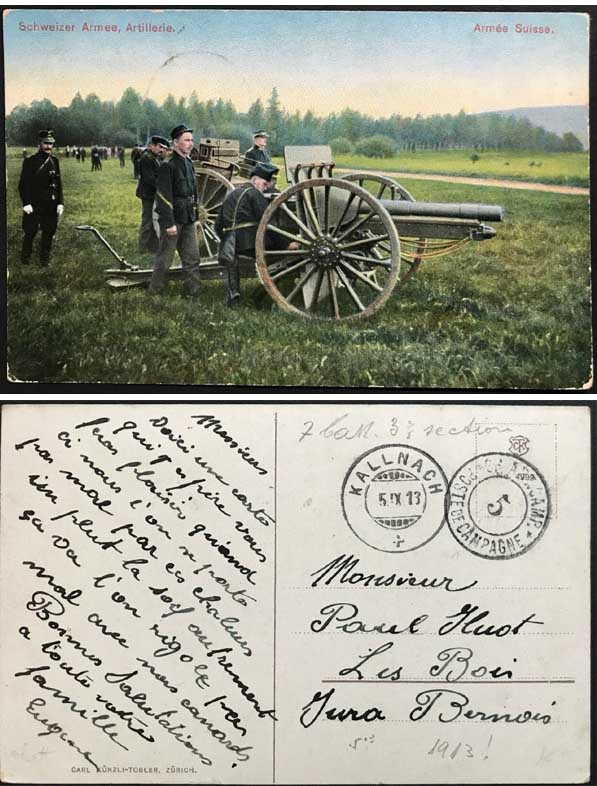 Schweizer Armee, Artillerie.
Armée Suisse.
Monsieur
Voici une carte
qui j'espère vous
feras plaisir, quand
a nous l'on se porte
pas mal par ces chaleurs
l'on peut la soif autrement
ça va l'on rigole pas
mal avec nos canards
Bonnes Salutations
a toute votre
famille
Eugène
CARL KÜNZLI-TOBLER, ZÜRICH.
7 batt. 3e section
KALLNACH
5.IX.13
5
POSTE DE CAMPAGNE
Monsieur
Paul Huot
Les Bois
Jura Bernois
1913!